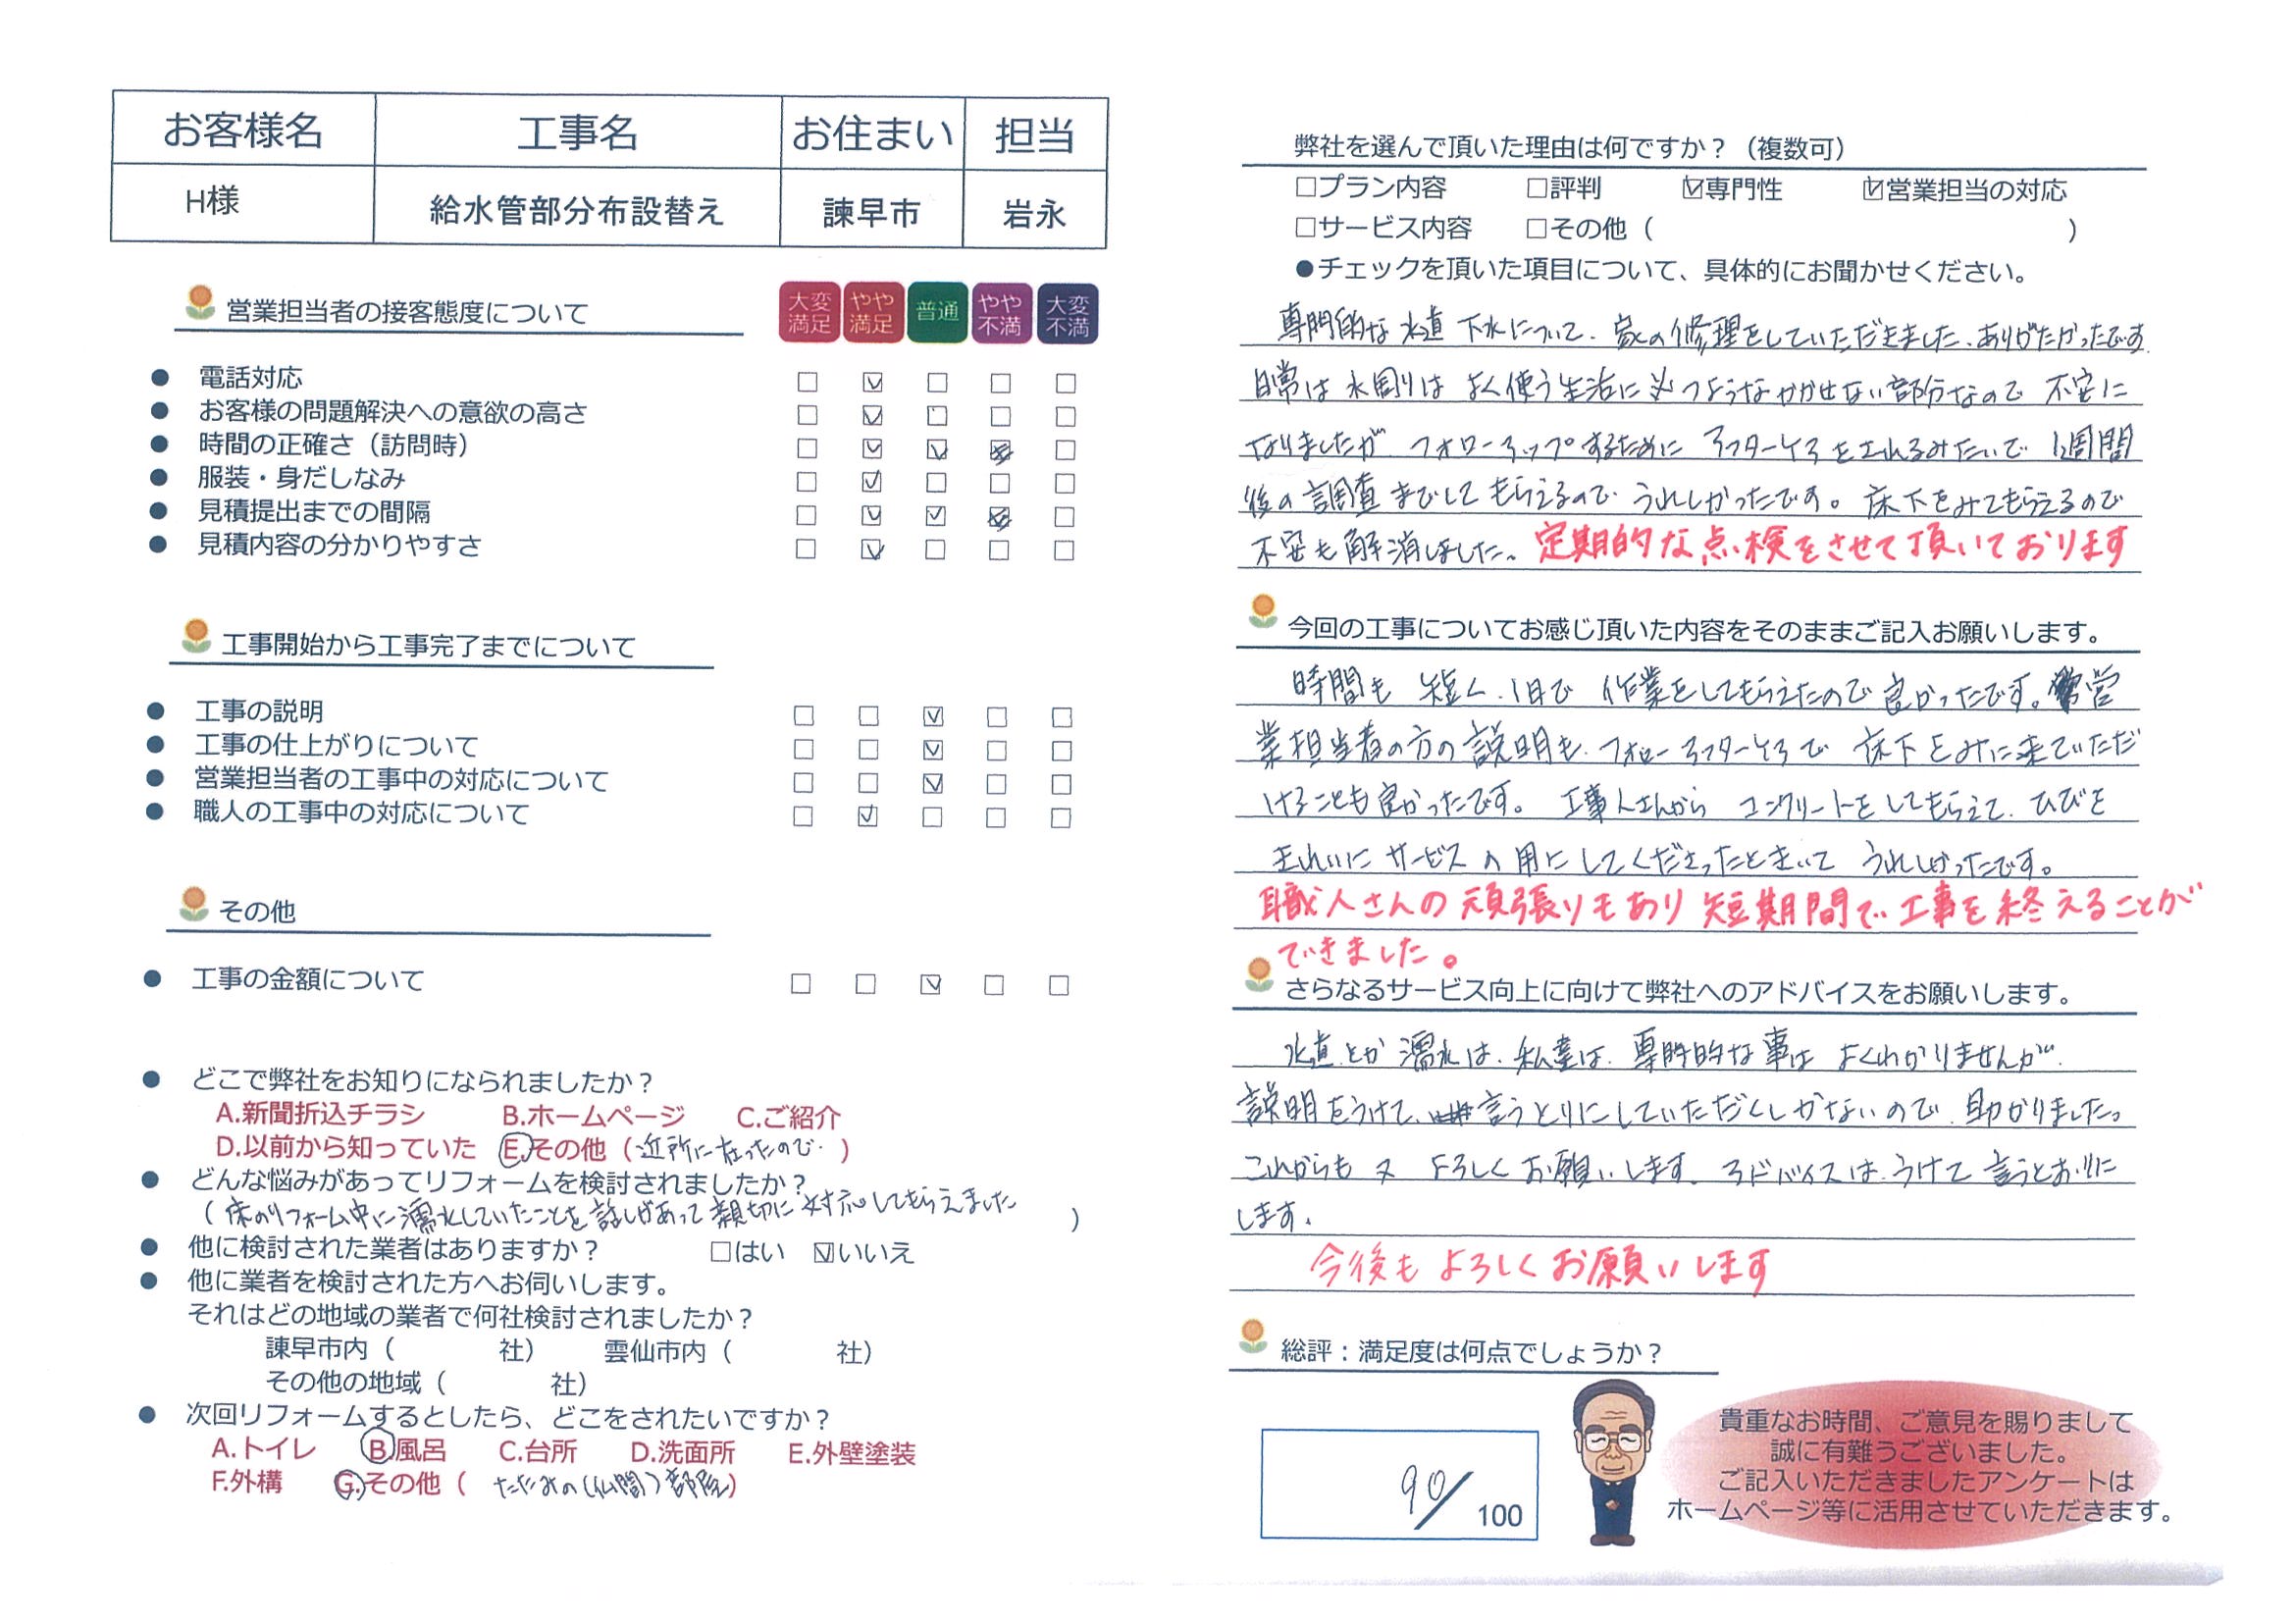 お客様名 工事名 お住まい 担当
H様 給水管部分布設替え 諫早市 岩永
営業担当者の接客態度について
大変満足 やや満足 普通 やや不満 大変不満
● 電話対応 □ ☑ □ □ □
● お客様の問題解決への意欲の高さ □ ☑ □ □ □
● 時間の正確さ（訪問時） □ ☑ ☑ □
● 服装・身だしなみ □ ☑ □ □ □
● 見積提出までの間隔 □ ☑ ☑ □
● 見積内容の分かりやすさ □ ☑ □ □ □
工事開始から工事完了までについて
● 工事の説明 □ □ ☑ □ □
● 工事の仕上がりについて □ □ ☑ □ □
● 営業担当者の工事中の対応について □ □ ☑ □ □
● 職人の工事中の対応について □ ☑ □ □ □
その他
● 工事の金額について □ □ ☑ □ □
● どこで弊社をお知りになられましたか？
A.新聞折込チラシ B.ホームページ C.ご紹介
D.以前から知っていた E.その他（近所に在ったので）
● どんな悩みがあってリフォームを検討されましたか？
（床のリフォーム中に漏水していたことを話しがあって親切に対応してもらえました）
● 他に検討された業者はありますか？ □はい ☑いいえ
● 他に業者を検討された方へお伺いします。
それはどの地域の業者で何社検討されましたか？
諫早市内（ 社） 雲仙市内（ 社）
その他の地域（ 社）
● 次回リフォームするとしたら、どこをされたいですか？
A.トイレ B.風呂 C.台所 D.洗面所 E.外壁塗装
F.外構 G.その他（ たたみの（仏間）部屋）
弊社を選んで頂いた理由は何ですか？（複数可）
□プラン内容 □評判 ☑専門性 ☑営業担当の対応
□サービス内容 □その他（ ）
●チェックを頂いた項目について、具体的にお聞かせください。
専門的な水道 下水について、家の修理をしていただきました、ありがたかったです。
日常は水周りは よく使う生活に かかせない部分なので 不安に
なりましたが フォローアップするために アフターケアをされるみたいで 1週間
後の調査までしてもらえるので うれしかったです。床下をみてもらえるので
不安も解消しました。 定期的な点検をさせて頂いております
今回の工事についてお感じ頂いた内容をそのままご記入お願いします。
時間も 短く、1日で 作業をしてもらえたので良かったです。営
業担当者の方の説明も、フォローアフターケアで 床下をみに来ていただ
けることも良かったです。 工事人さんから コンクリートをしてもらえて、ひびを
きれいに サービス 用にしてくださったときいて うれしかったです。
職人さんの頑張りもあり短期間で工事を終えることが
できました。
さらなるサービス向上に向けて弊社へのアドバイスをお願いします。
水道とか漏水は、私達は、専門的な事は よくわかりませんが、
説明をうけて、言うとりにしていただくしかないので、助かりました。
これからも又 よろしくお願いします。アドバイスは、うけて 言うとおりに
します。
今後もよろしくお願いします
総評：満足度は何点でしょうか？
90/100
貴重なお時間、ご意見を賜りまして
誠に有難うございました。
ご記入いただきましたアンケートは
ホームページ等に活用させていただきます。